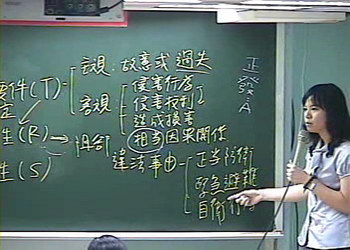 主觀：故意或過失
要件(T)
客觀
侵害行為
侵害权利
造成損害
相當因果關係
性(R)
違法事由
正當防衛
緊急避難
自衛行為
性(S)
正
發
A